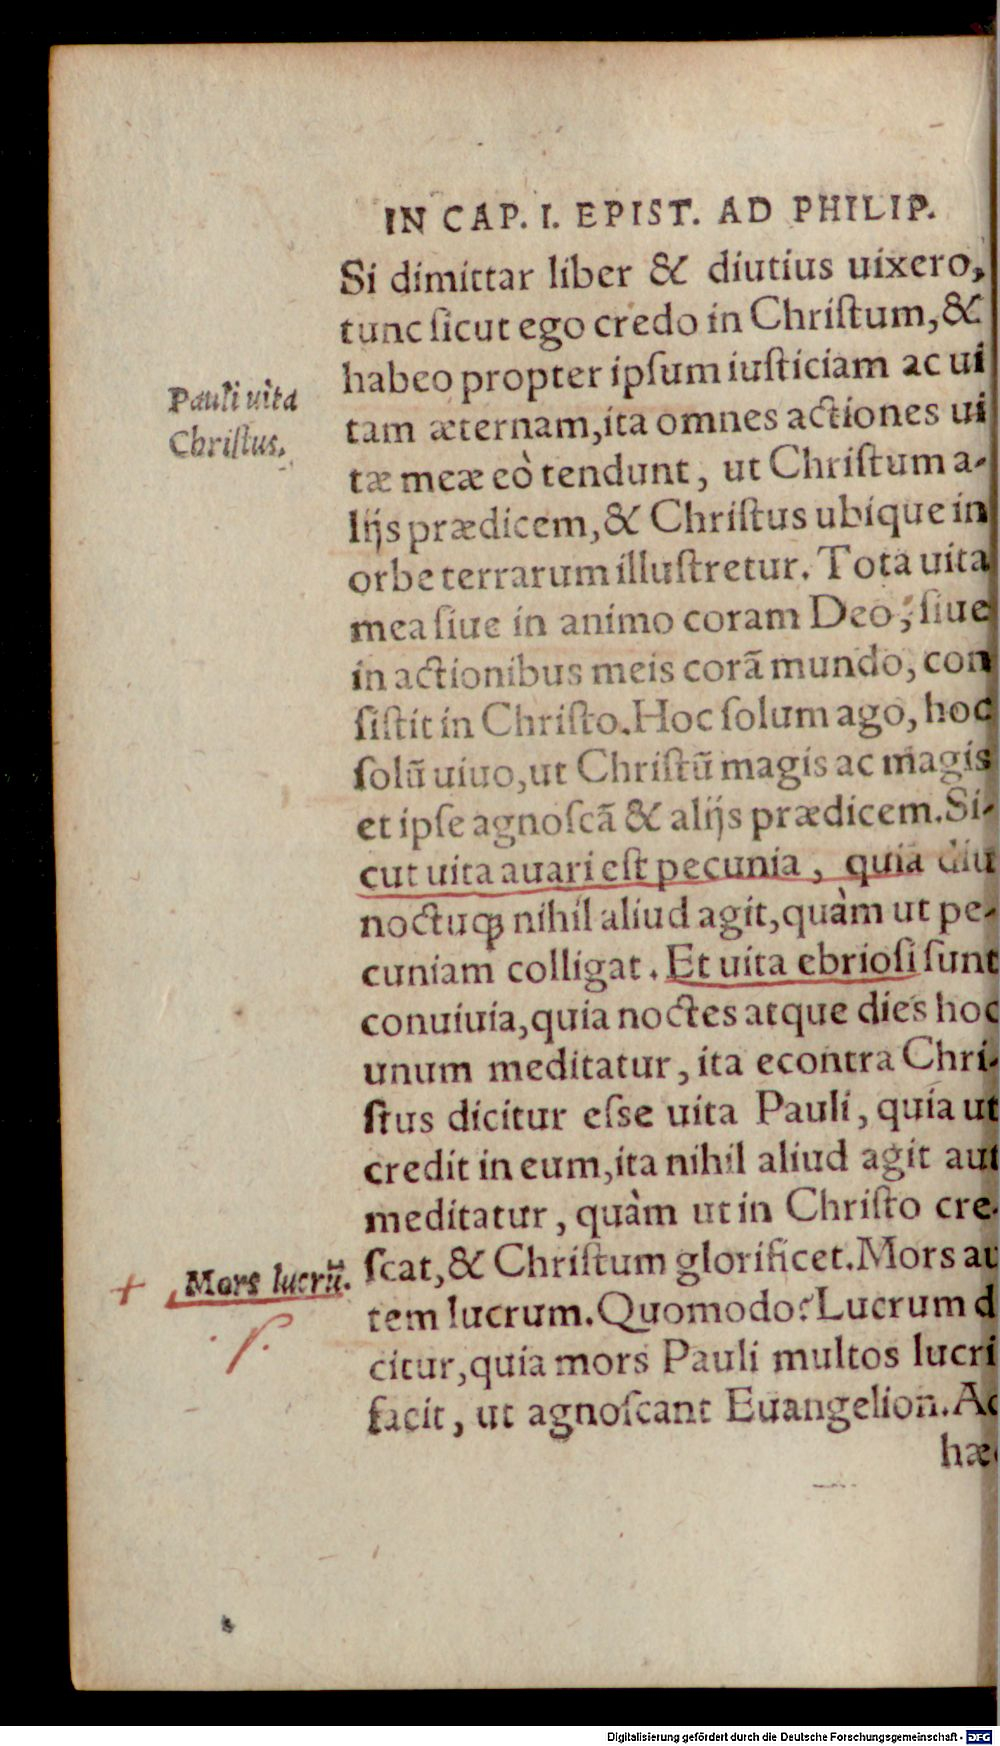 IN CAP. I. EPIST. AD PHILIP.
Si dimittar liber & diutius uixero,
tunc ſicut ego credo in Chriſtum, &
habeo propter ipſum iuſticiam ac ui
Pauli uita
Chriſtus.
tam æternam, ita omnes actiones ui
tæ meæ eò tendunt, ut Chriſtum a-
lijs prædicem, & Chriſtus ubique in
orbe terrarum illuſtretur. Tota uita
mea ſiue in animo coram Deo, ſiue
in actionibus meis corã mundo, con
ſiſtit in Chriſto. Hoc ſolum ago, hoc
ſolũ uiuo, ut Chriſtũ magis ac magis
et ipſe agnoſcã & alijs prædicem. Si-
cut uita auari eſt pecunia, quia diu
noctuq́ꝫ nihil aliud agit, quàm ut pe-
cuniam colligat. Et uita ebrioſi ſunt
conuiuia, quia noctes atque dies hoc
unum meditatur, ita econtra Chri-
ſtus dicitur eſse uita Pauli, quia ut
credit in eum, ita nihil aliud agit aut
meditatur, quàm ut in Chriſto cre-
ſcat, & Chriſtum glorificet. Mors au
+ Mors lucrũ.
tem lucrum. Quomodo? Lucrum d
citur, quia mors Pauli multos lucri
facit, ut agnoſcant Euangelion. Ac
hæc
Digitalisierung gefördert durch die Deutsche Forschungsgemeinschaft - DFG